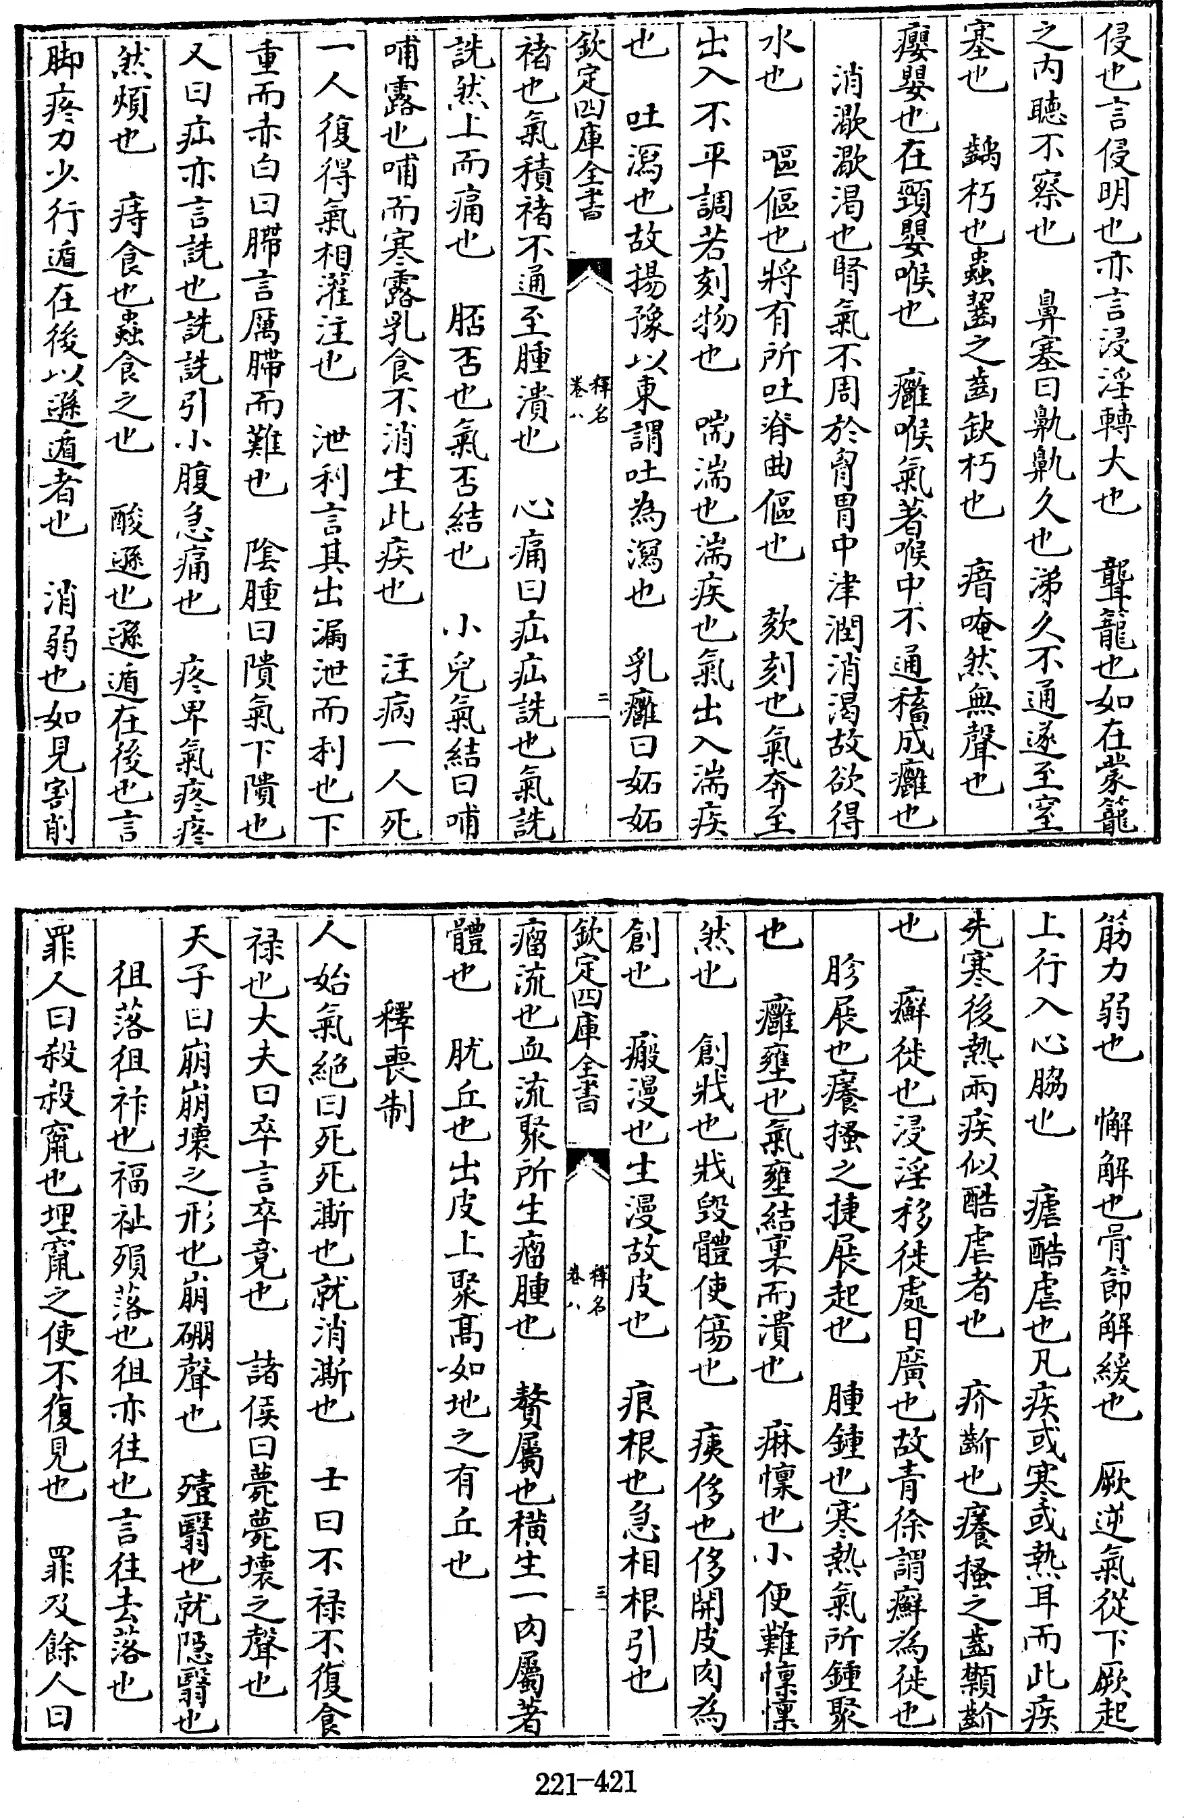 侵也言侵明也亦言浸淫轉大也　聾籠也如在蒙籠
之内聽不察也　鼻塞曰鼽鼽久也涕久不通遂至窒
塞也　齲朽也蟲齧之齒缺朽也　瘖唵然無聲也
癭嬰也在頸嬰喉也　癰喉氣著喉中不通穡成癰也
消㵣㵣渴也腎氣不周於胷胃中津潤消渴故欲得
水也　嘔傴也將有所吐脊曲傴也　欬刻也氣奔至
出入不平調若刻物也　喘湍也湍疾也氣出入湍疾
也　吐瀉也故揚豫以東謂吐為瀉也　乳癰曰妬妬
欽定四庫全書　釋名卷八　二
褚也氣積褚不通至腫潰也　心痛曰疝疝詵也氣詵
詵然上而痛也　脴否也氣否結也　小兒氣結曰哺
哺露也哺而寒露乳食不消生此疾也　注病一人死
一人復得氣相灌注也　泄利言其出漏泄而利也下
重而赤白曰䐭言厲䐭而難也　陰腫曰隤氣下隤也
又曰疝亦言詵也詵詵引小腹急痛也　疼卑氣疼疼
然煩也　痔食也蟲食之也　酸遜也遜遁在後也言
脚疼力少行遁在後以遜遁者也　消弱也如見割削
筋力弱也　懈解也骨節解緩也　厥逆氣從下厥起
上行入心脇也　瘧酷虐也凡疾或寒或熱耳而此疾
先寒後熱兩疾似酷虐者也　疥齘也癢搔之齒類齘
也　癬徙也浸淫移徙處日廣也故青徐謂癬為徙也
胗展也癢搔之捷展起也　腫鍾也寒熱氣所鍾聚
也　癰壅也氣壅結裏而潰也　痳懍也小便難懍懍
然也　創戕也戕毁體使傷也　痍侈也侈開皮肉為
創也　瘢漫也生漫故皮也　痕根也急相根引也
欽定四庫全書　釋名卷八　三
瘤流也血流聚所生瘤腫也　贅屬也横生一肉屬著
體也　肬丘也出皮上聚高如地之有丘也
釋喪制
人始氣絶曰死死澌也就消澌也　士曰不禄不復食
禄也大夫曰卒言卒竟也　諸侯曰薨薨壞之聲也
天子曰崩崩壞之形也崩硼聲也　殪翳也就隠翳也
徂落徂祚也福祉殞落也徂亦往也言往去落也
罪人曰殺殺竄也埋竄之使不復見也　罪及餘人曰
221-421